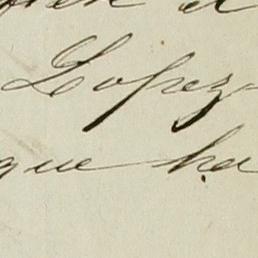 Lopez
que ha